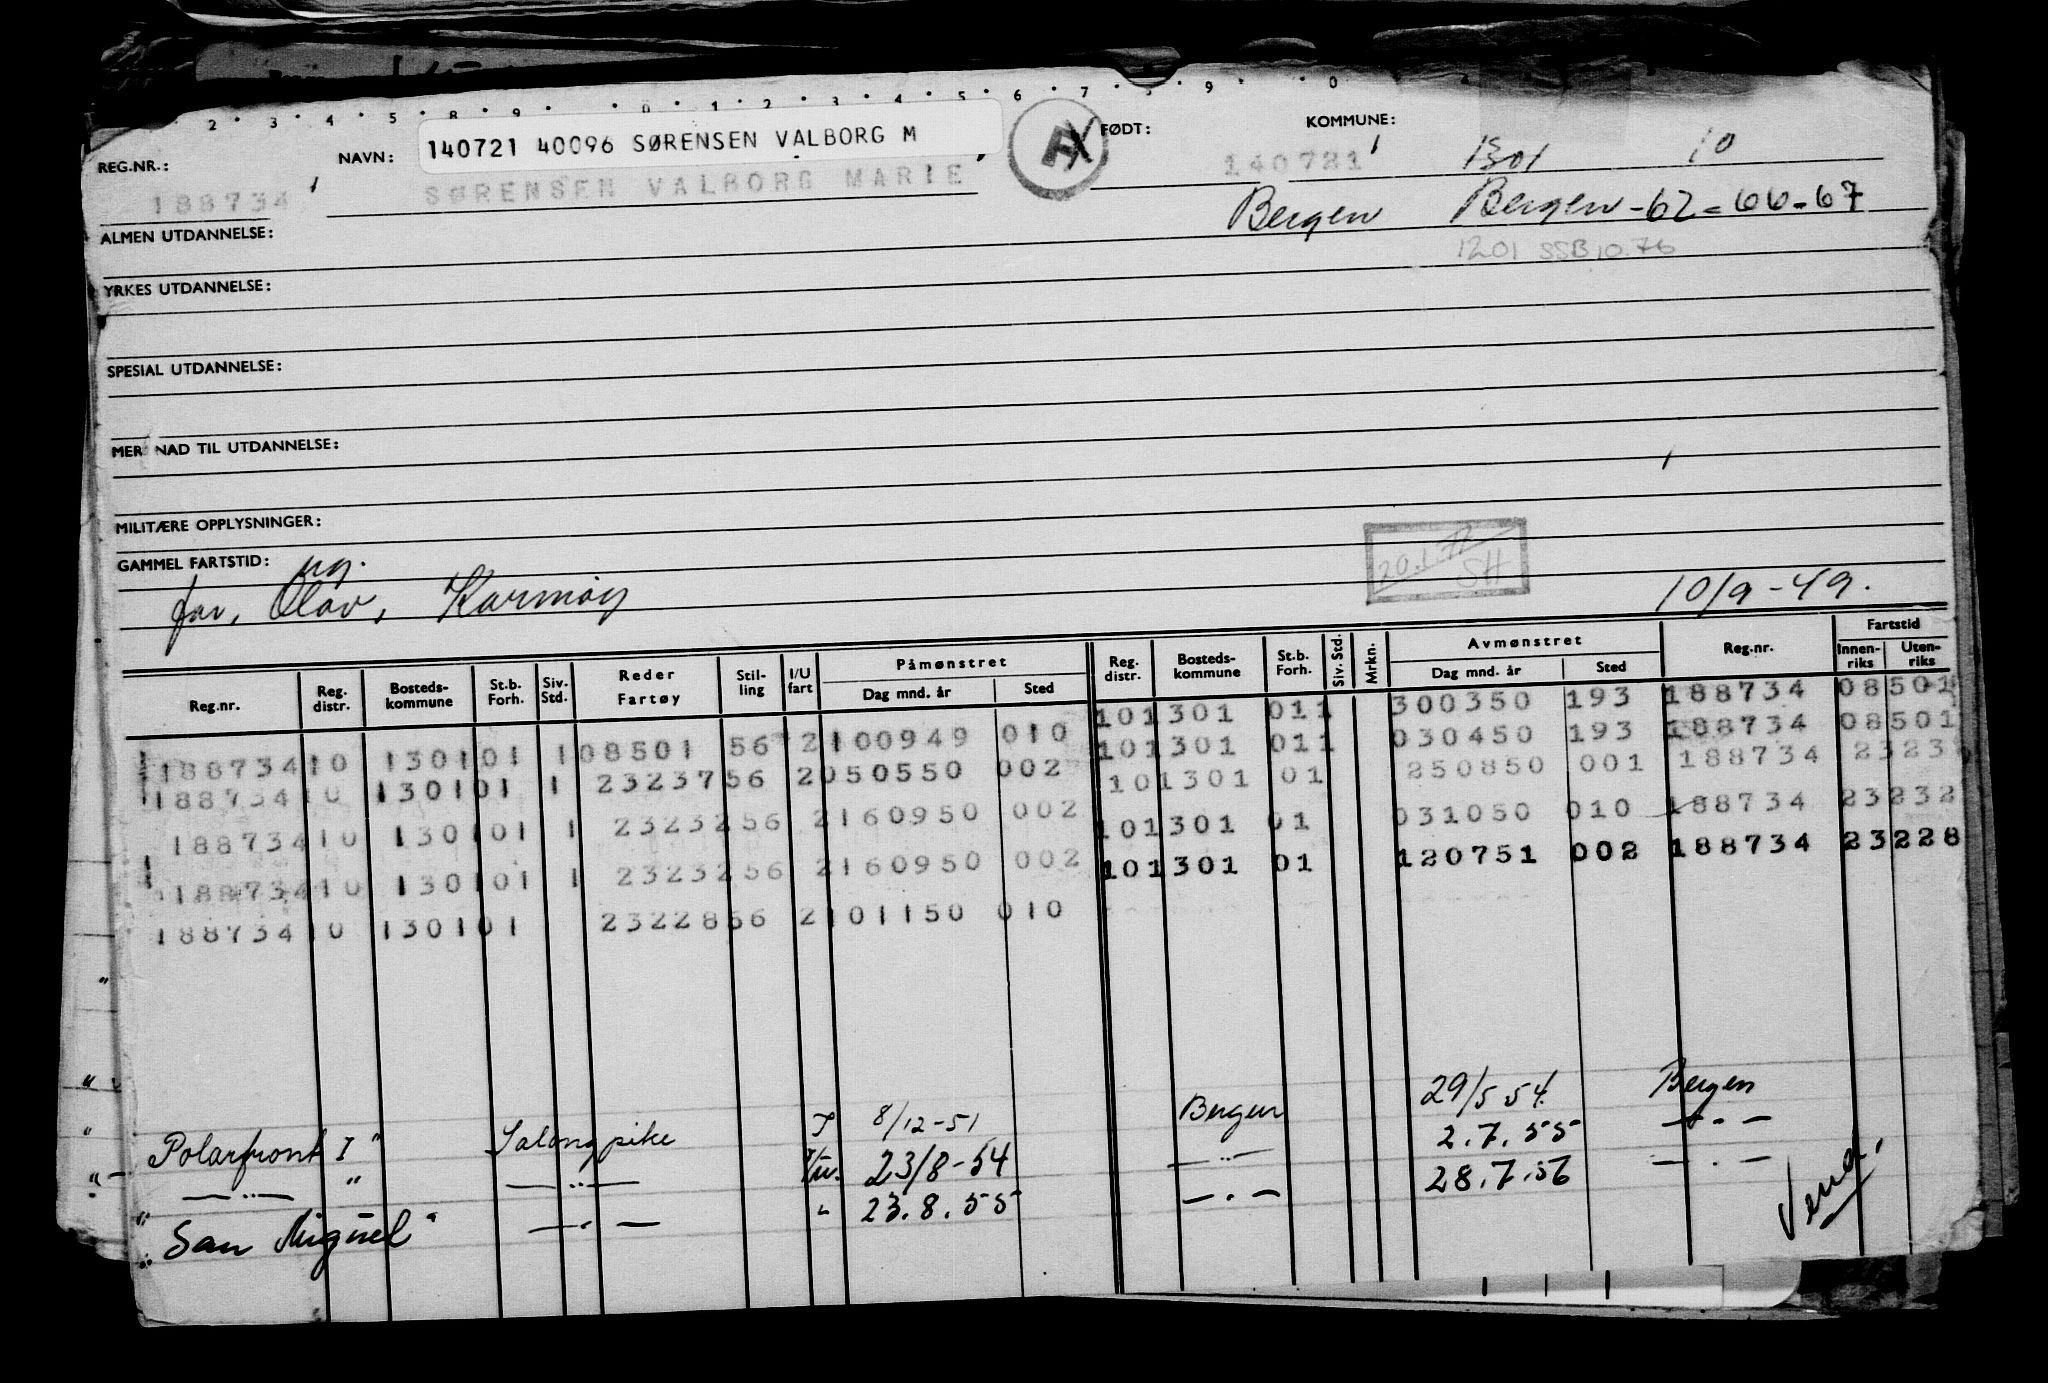 2 · 3 · 4 · 5 · 8 · 9 · 0 · 1 · 2 · 3 · 4 · 5 · 6 · 7 · 8 · 9 · 0
REG.NR.: NAVN: 140721 40096 SØRENSEN VALBORG M FØDT: KOMMUNE:
188734 SØRENSEN VALBORG MARIE 140721 1301 10
ALMEN UTDANNELSE: Bergen Bergen-62-66-67
1201 SSB 10.76
YRKES UTDANNELSE:
SPESIAL UTDANNELSE:
MERKNAD TIL UTDANNELSE:
MILITÆRE OPPLYSNINGER:
GAMMEL FARTSTID: ug. 20.1.72 SH
far, Olav, Karmøy 10/9-49.
Reg.nr. Reg. distr. Bosteds-kommune St.b. Forh. Siv. Std. Reder Fartøy Stil-ling I/U fart Påmønstret Dag mnd. år Sted Reg. distr. Bosteds-kommune St.b. Forh. Siv. Std. Mrkn. Avmønstret Dag mnd. år Sted Reg.nr. Fartstid Innen-riks Uten-riks
188734 10 1301 01 1 08501 56 2 100949 010 10 1301 01 1 300350 193 188734 08501
188734 10 1301 01 1 23237 56 2 050550 002 10 1301 01 1 030450 193 188734 08501
188734 10 1301 01 1 23232 56 2 160950 002 10 1301 01 250850 001 188734 2323
188734 10 1301 01 1 23232 56 2 160950 002 10 1301 01 031050 010 188734 23232
188734 10 1301 01 23228 56 2 101150 010 10 1301 01 120751 002 188734 23228
Polarfront I" Salongpike I 8/12-51 Bergen 29/5 54. Bergen
—"— " —"— I/u. 23/8-54 —"— 2.7.55 —"—
"San Miguel" —"— " 23.8.55 —"— 28.7.56 —"—